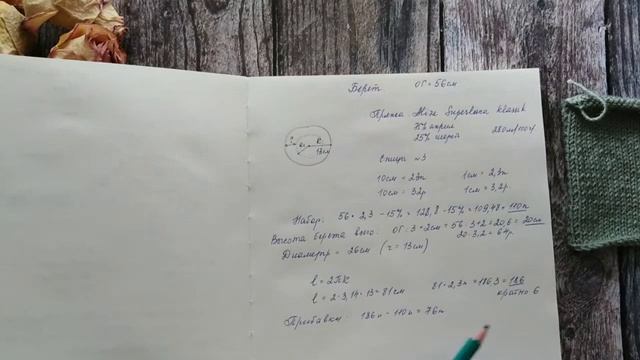 Берет ОГ = 56см
Пряжа Alize Superlana klasik
75% акрил
25% шерсть 280м/100г.
Спицы №3
R
13см
10см = 23п 1см = 2,3п
10см = 32р 1см = 3,2р.
Набор: 56 × 2,3 - 15% = 128,8 - 15% = 109,48 = 110п
Высота берета всего: ОГ : 3 + 2см = 56 : 3 + 2 = 20,6 = 20см
20 · 3,2 = 64р.
Диаметр = 26см (r = 13см)
l = 2πR
l = 2 · 3,14 · 13 = 81см 81 · 2,3п = 186,3 = 186
кратно 6
Прибавки: 186п - 110п = 76п